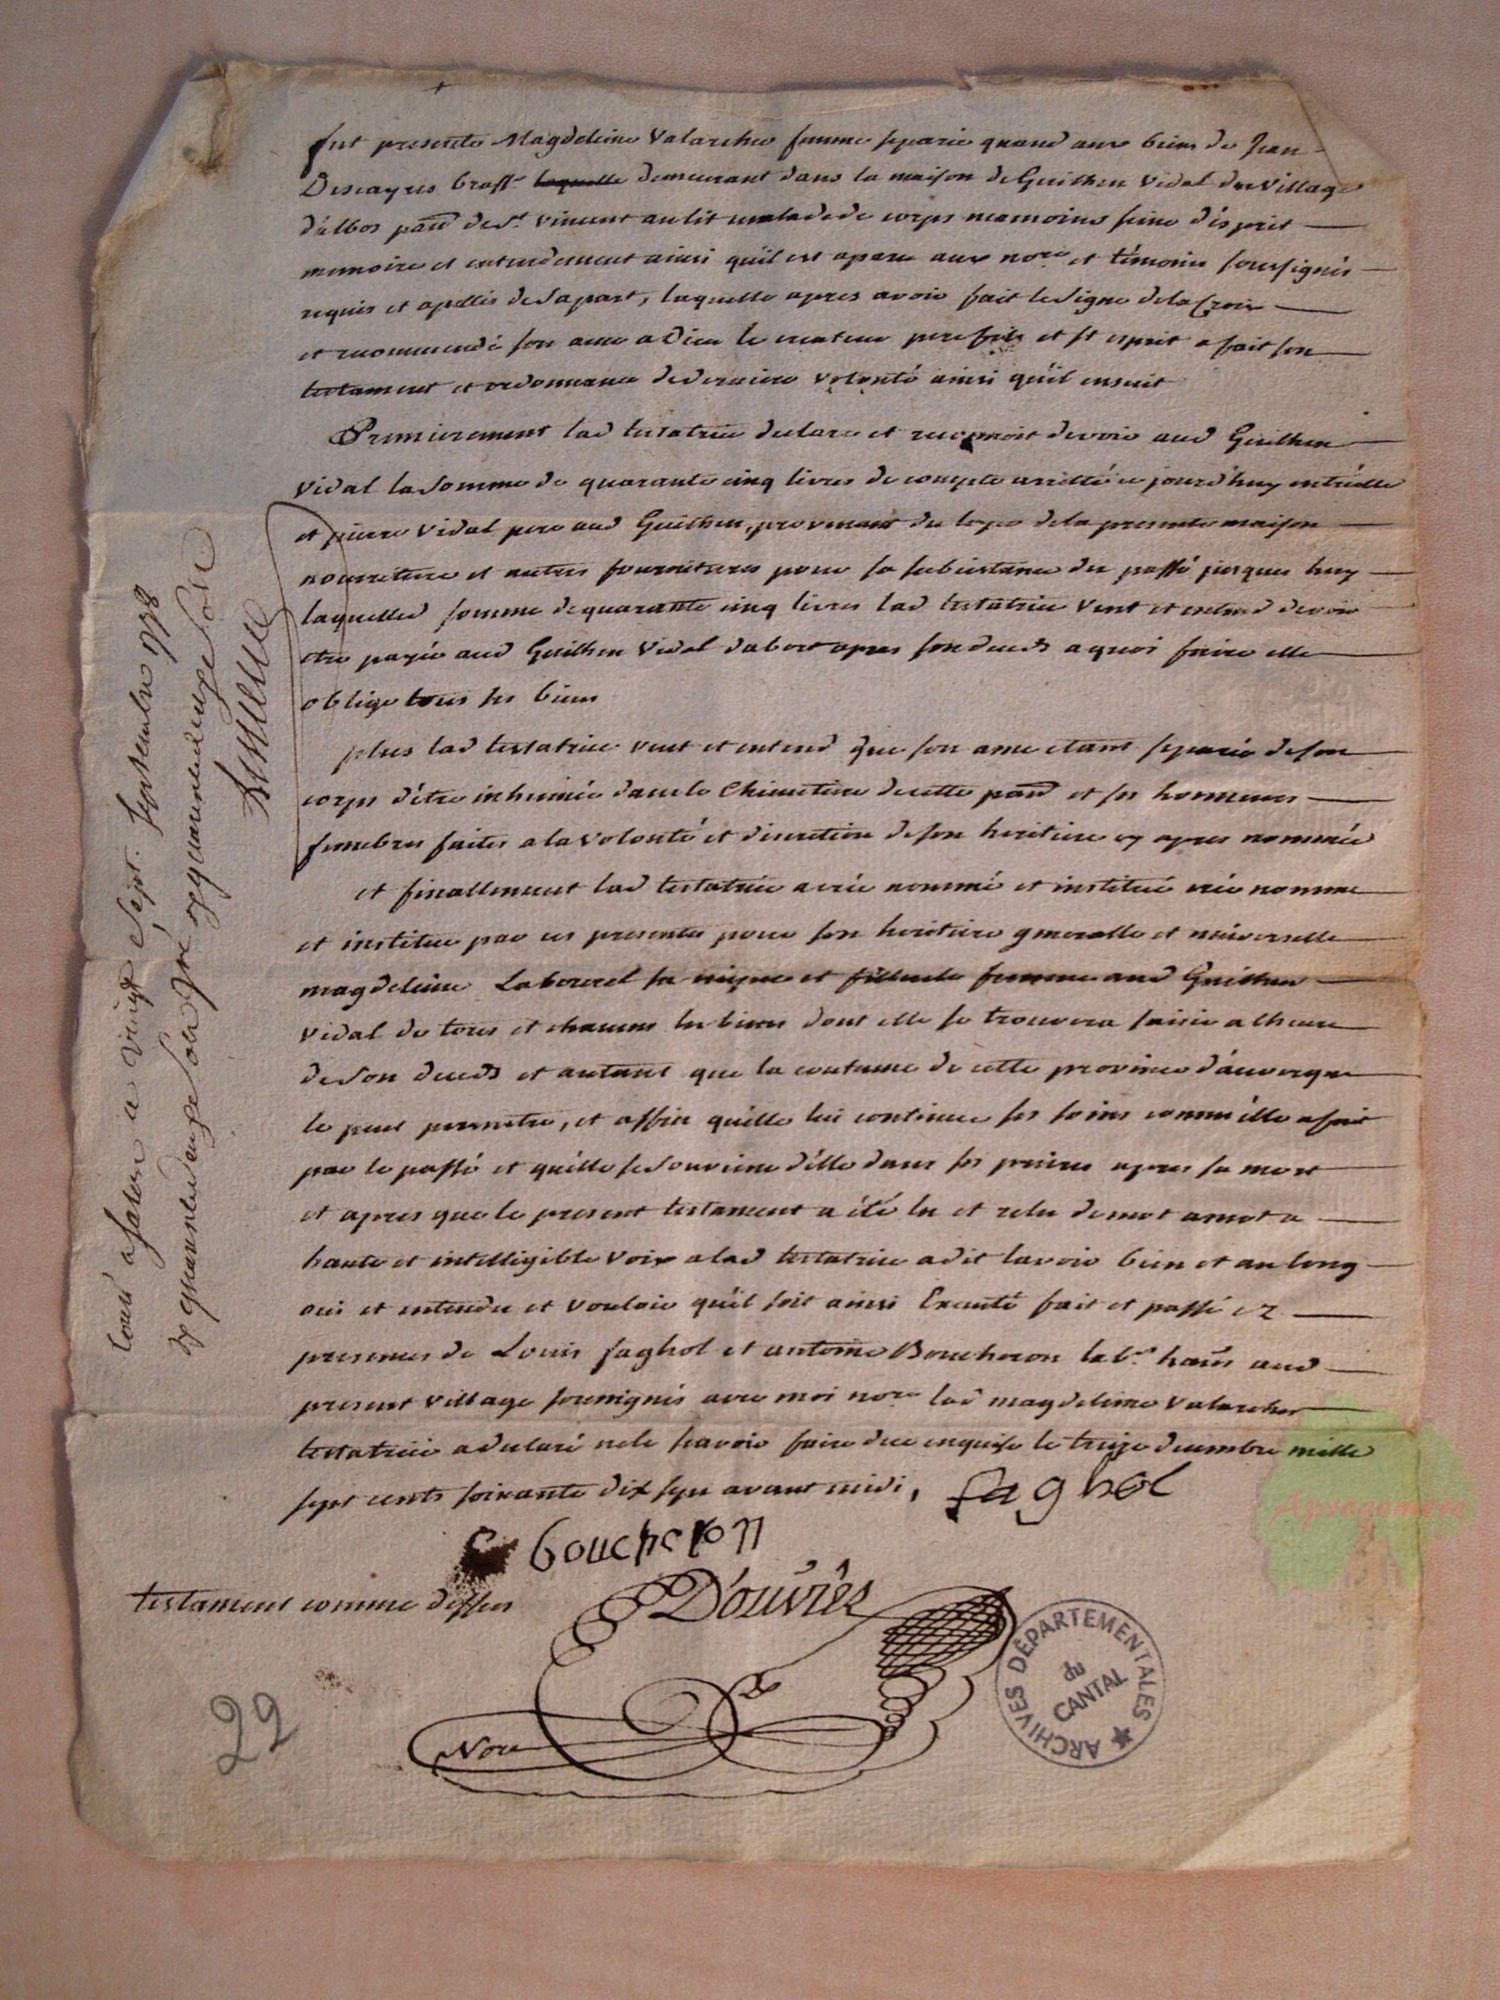 fut presente Magdeleine Valarcher femme separée quand aux biens de Jean
Descayres brass.r laquelle demeurant dans la maison de Guilhen Vidal du Village
d'albos par.se de S.t Vincent au lit malade de corps neamoins seine d'esprit
memoire et entendement ainsi qu'il est aparu aux no.re et témoins soussignés
requis et apellés de sa part, laquelle apres avoir fait le signe de la Croix
et recommendé son ame a Dieu le createur pere fils et st esprit a fait son
testament et ordonnance de derniere volonté ainsi qu'il ensuit
Premierement lad testatrice declare et reconnoit devoir aud Guilhen
Vidal la somme de quarante cinq livres de compte arretté ce jourd'huy entr'elle
et pierre Vidal pere aud Guilhen, provenant du loyer de la presente maison
nourriture et autres fournitures pour sa subcistance du passé jusques huy
laquelled somme de quarante cinq livres lad testatrice veut et entend devoir
etre payée aud Guilhen Vidal dabort apres son deceds a quoi faire elle
oblige tous ses biens
plus lad testatrice veut et entend que son ame etant separée de son
corps d'étre inhumée dans le Chimetiere de cette par.se et ses honneurs
funebres faites a la volonté et discretion de son heritiere cy apres nommée
et finallement lad testatrice a crée nommé et institué crée nomme
et institue par ces presentes pour son heritiere generalle et universelle
magdeleine Labourel sa niepce et filleule femme aud Guilhen
Vidal de tous et chacuns les biens dont elle se trouvera saisie a lheure
de son deceds et autant que la coutume de cette province d'auvergne
le peut permetre, et affin qu'elle lui continue ses soins comme elle a fait
par le passé et qu'elle se souvienne d'elle dans ses prieres apres sa mort
et apres que le present testament a été lu et relu de mot a mot a
haute et intelligible voix a lad testatrice a dit lavoir bien et au long
oui et entendu et vouloir qu'il soit ainsi Executé fait et passé ez
presences de Louis faghol et antoine Boucheron lab.rs hans aud
present village soussignés avec moi no.re lad magdeleine Valarcher
testatrice a declaré ne le savoir faire de ce enquise le treize decembre mille
sept cents soixante dix sept avant midi,
faghol
boucheron
D'ouvrès
testament comme dessus
Nore
22
Conté a Salers a vingt sept. Septembre 1778
ARCHIVES DÉPARTEMENTALES
du
CANTAL
Aprogemere